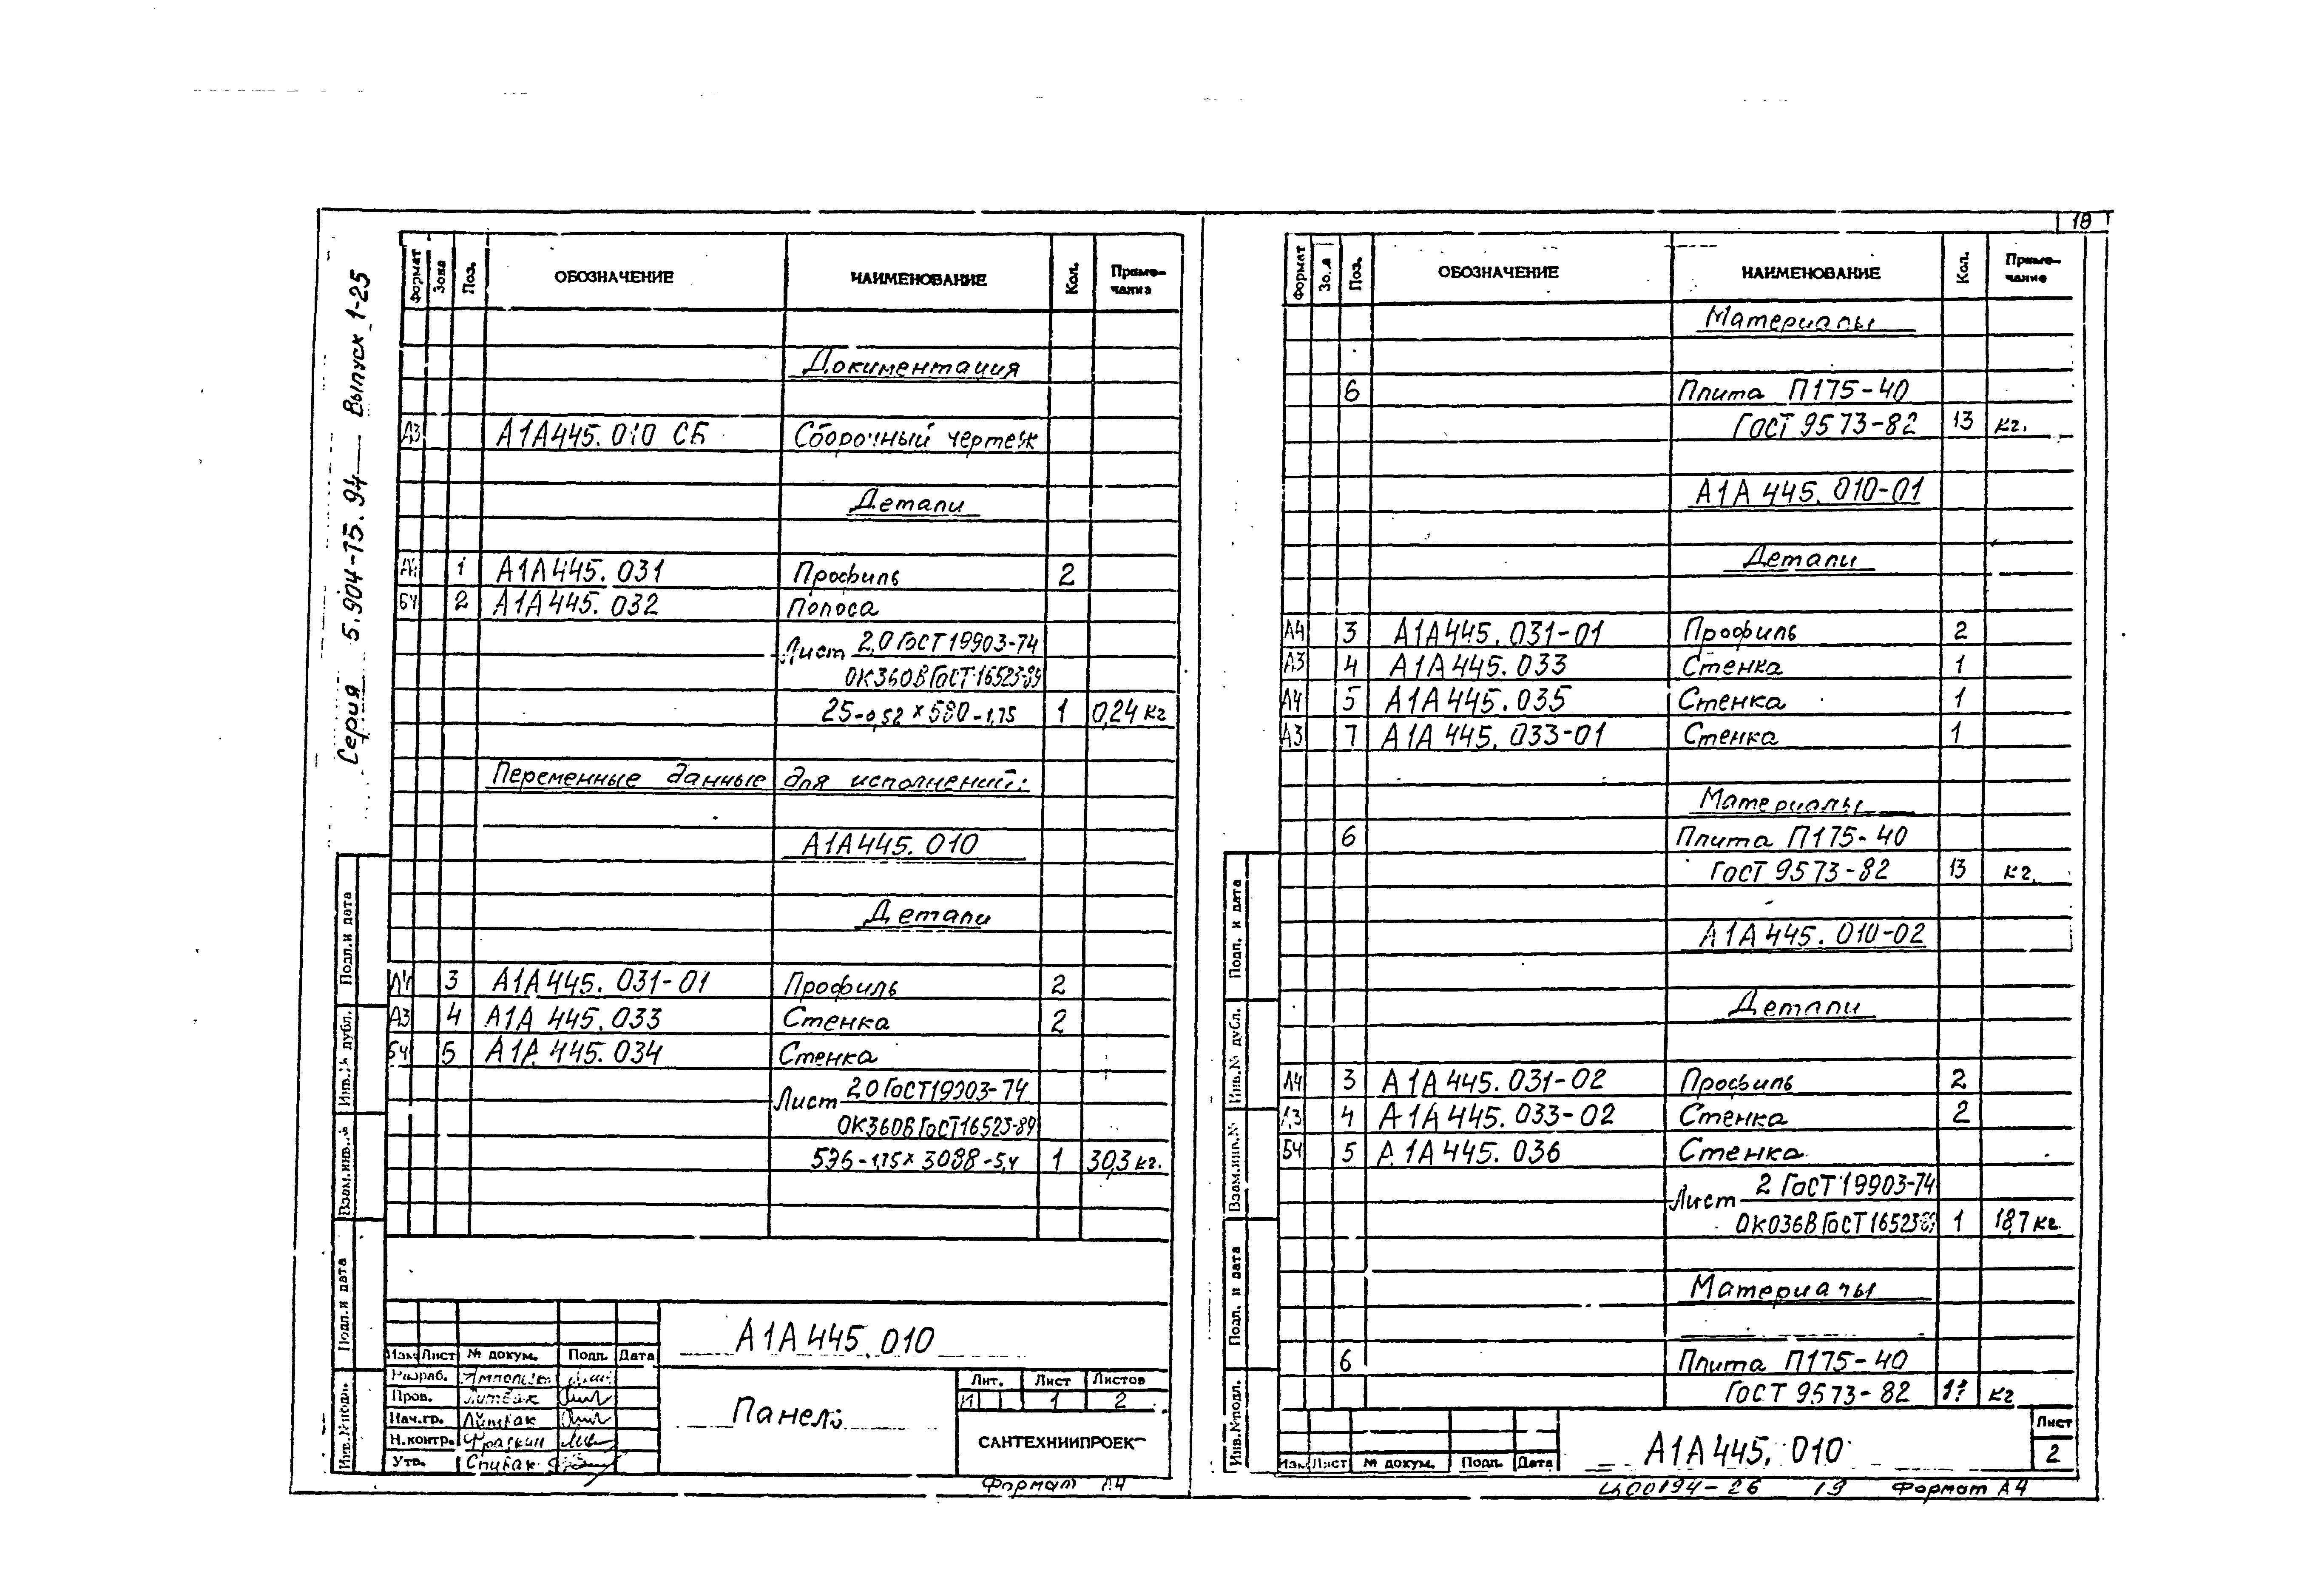 18
Серия 5.904-75.94 Выпуск 1-25
Формат Зона Поз. ОБОЗНАЧЕНИЕ НАИМЕНОВАНИЕ Кол. Приме-
чание
Документация
А3 А1А445.010 СБ Сборочный чертеж
Детали
1 А1А445.031 Профиль 2
БЧ 2 А1А445.032 Полоса
Лист 2,0 ГОСТ 19903-74
ОК360В ГОСТ 16523-89
25-0,52 х 580-1,75 1 0,24 кг
Переменные данные для исполнений:
А1А445.010
Детали
А4 3 А1А445.031-01 Профиль 2
А3 4 А1А 445.033 Стенка 2
БЧ 5 А1А 445.034 Стенка
Лист 2,0 ГОСТ 19903-74
ОК360В ГОСТ 16523-89
596-1,75 х 3088-5,4 1 30,3 кг.
Подп.и дата
Инв.№ дубл.
Взам.инв.№
Подп.и дата
Инв.№подл.
А1А445.010
Изм Лист № докум. Подп. Дата
Разраб.
Пров. Литвак
Нач.гр. Литвак
Н.контр. Фрасkin
Утв. Спивак
Панель
Лит. Лист Листов
И 1 2
САНТЕХНИИПРОЕКТ
Формат А4
Формат Поз. ОБОЗНАЧЕНИЕ НАИМЕНОВАНИЕ Кол. Приме-
чание
Материалы
6 Плита П175-40
ГОСТ 9573-82 13 кг.
А1А 445.010-01
Детали
А4 3 А1А445.031-01 Профиль 2
А3 4 А1А445.033 Стенка 1
А4 5 А1А445.035 Стенка 1
А3 7 А1А 445.033-01 Стенка 1
Материалы
6 Плита П175-40
ГОСТ 9573-82 13 кг.
А1А 445.010-02
Детали
А4 3 А1А445.031-02 Профиль 2
А3 4 А1А445.033-02 Стенка 2
БЧ 5 А1А445.036 Стенка
Лист 2 ГОСТ 19903-74
ОК036В ГОСТ 16523-89 1 18,7 кг
Материалы
6 Плита П175-40
ГОСТ 9573-82 кг
Подп. и дата
Инв.№ дубл.
Взам.инв.№
Подп. и дата
Инв.№подл.
Изм Лист № докум. Подп. Дата
А1А445.010
Лист
2
Ц00194-26 19 Формат А4